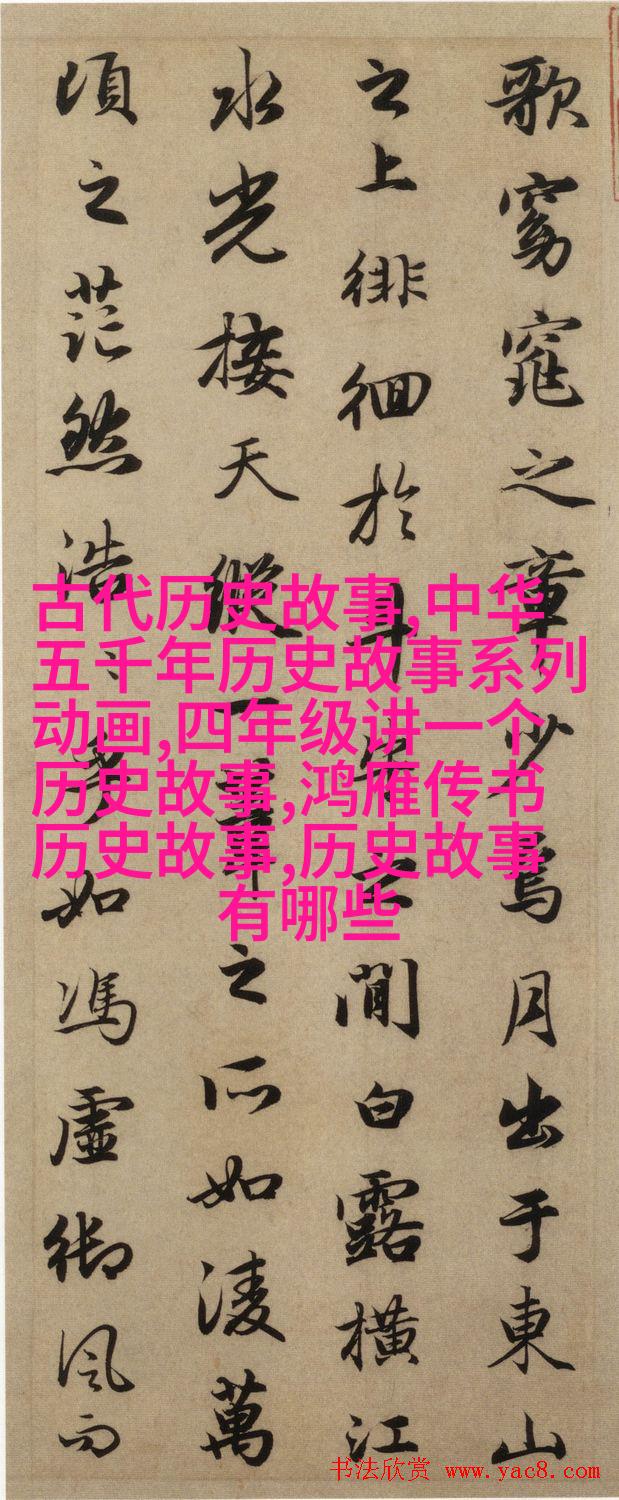 歌窈窕之章少焉月出于東山
之上徘徊於斗牛之間白露橫江
水光接天縱一葦之所如淩萬
頃之茫然浩〻乎如馮虛御風而
古代历史故事,中华
五千年历史故事系列
动画,四年级讲一个
历史故事,鸿雁传书
历史故事,历史故事
有哪些
书法欣赏 www.yac8.com